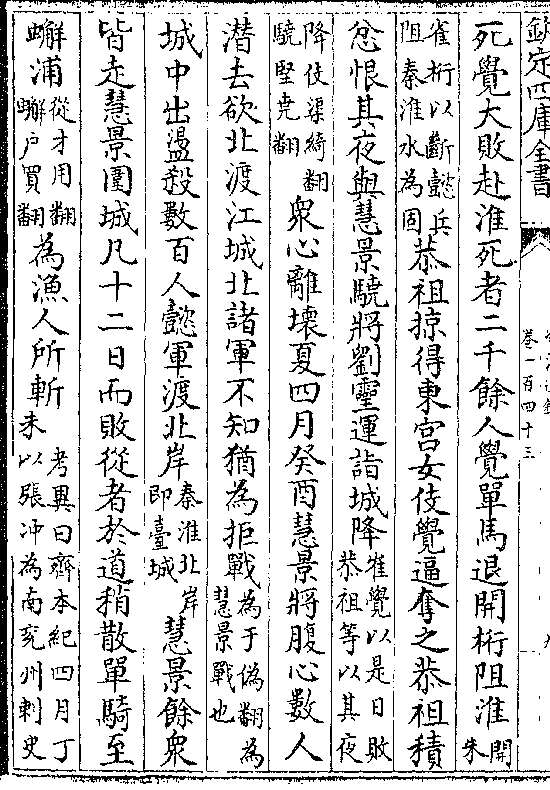 欽定四庫全書
卷一百四十三
死覺大敗赴淮死者二千餘人覺單馬退開桁阻淮開朱
雀桁以斷懿兵阻秦淮水為固恭祖掠得東宮女伎覺逼奪之恭祖積
忿恨其夜與慧景驍將劉靈運詣城降崔覺以是日敗恭祖等以其夜
降伎渠綺翻驍堅尭翻眾心離壞夏四月癸酉慧景將腹心數人
潛去欲北渡江城北諸軍不知猶為拒戰為于偽翻為慧景戰也
城中出盪殺數百人懿軍渡北岸秦淮北岸即臺城慧景餘衆
皆走慧景圍城凡十二日而敗從者於道稍散單騎至
蠏浦從才用翻蠏户買翻為漁人所斬考異曰齊本紀四月丁未以張冲為南兖州刺史